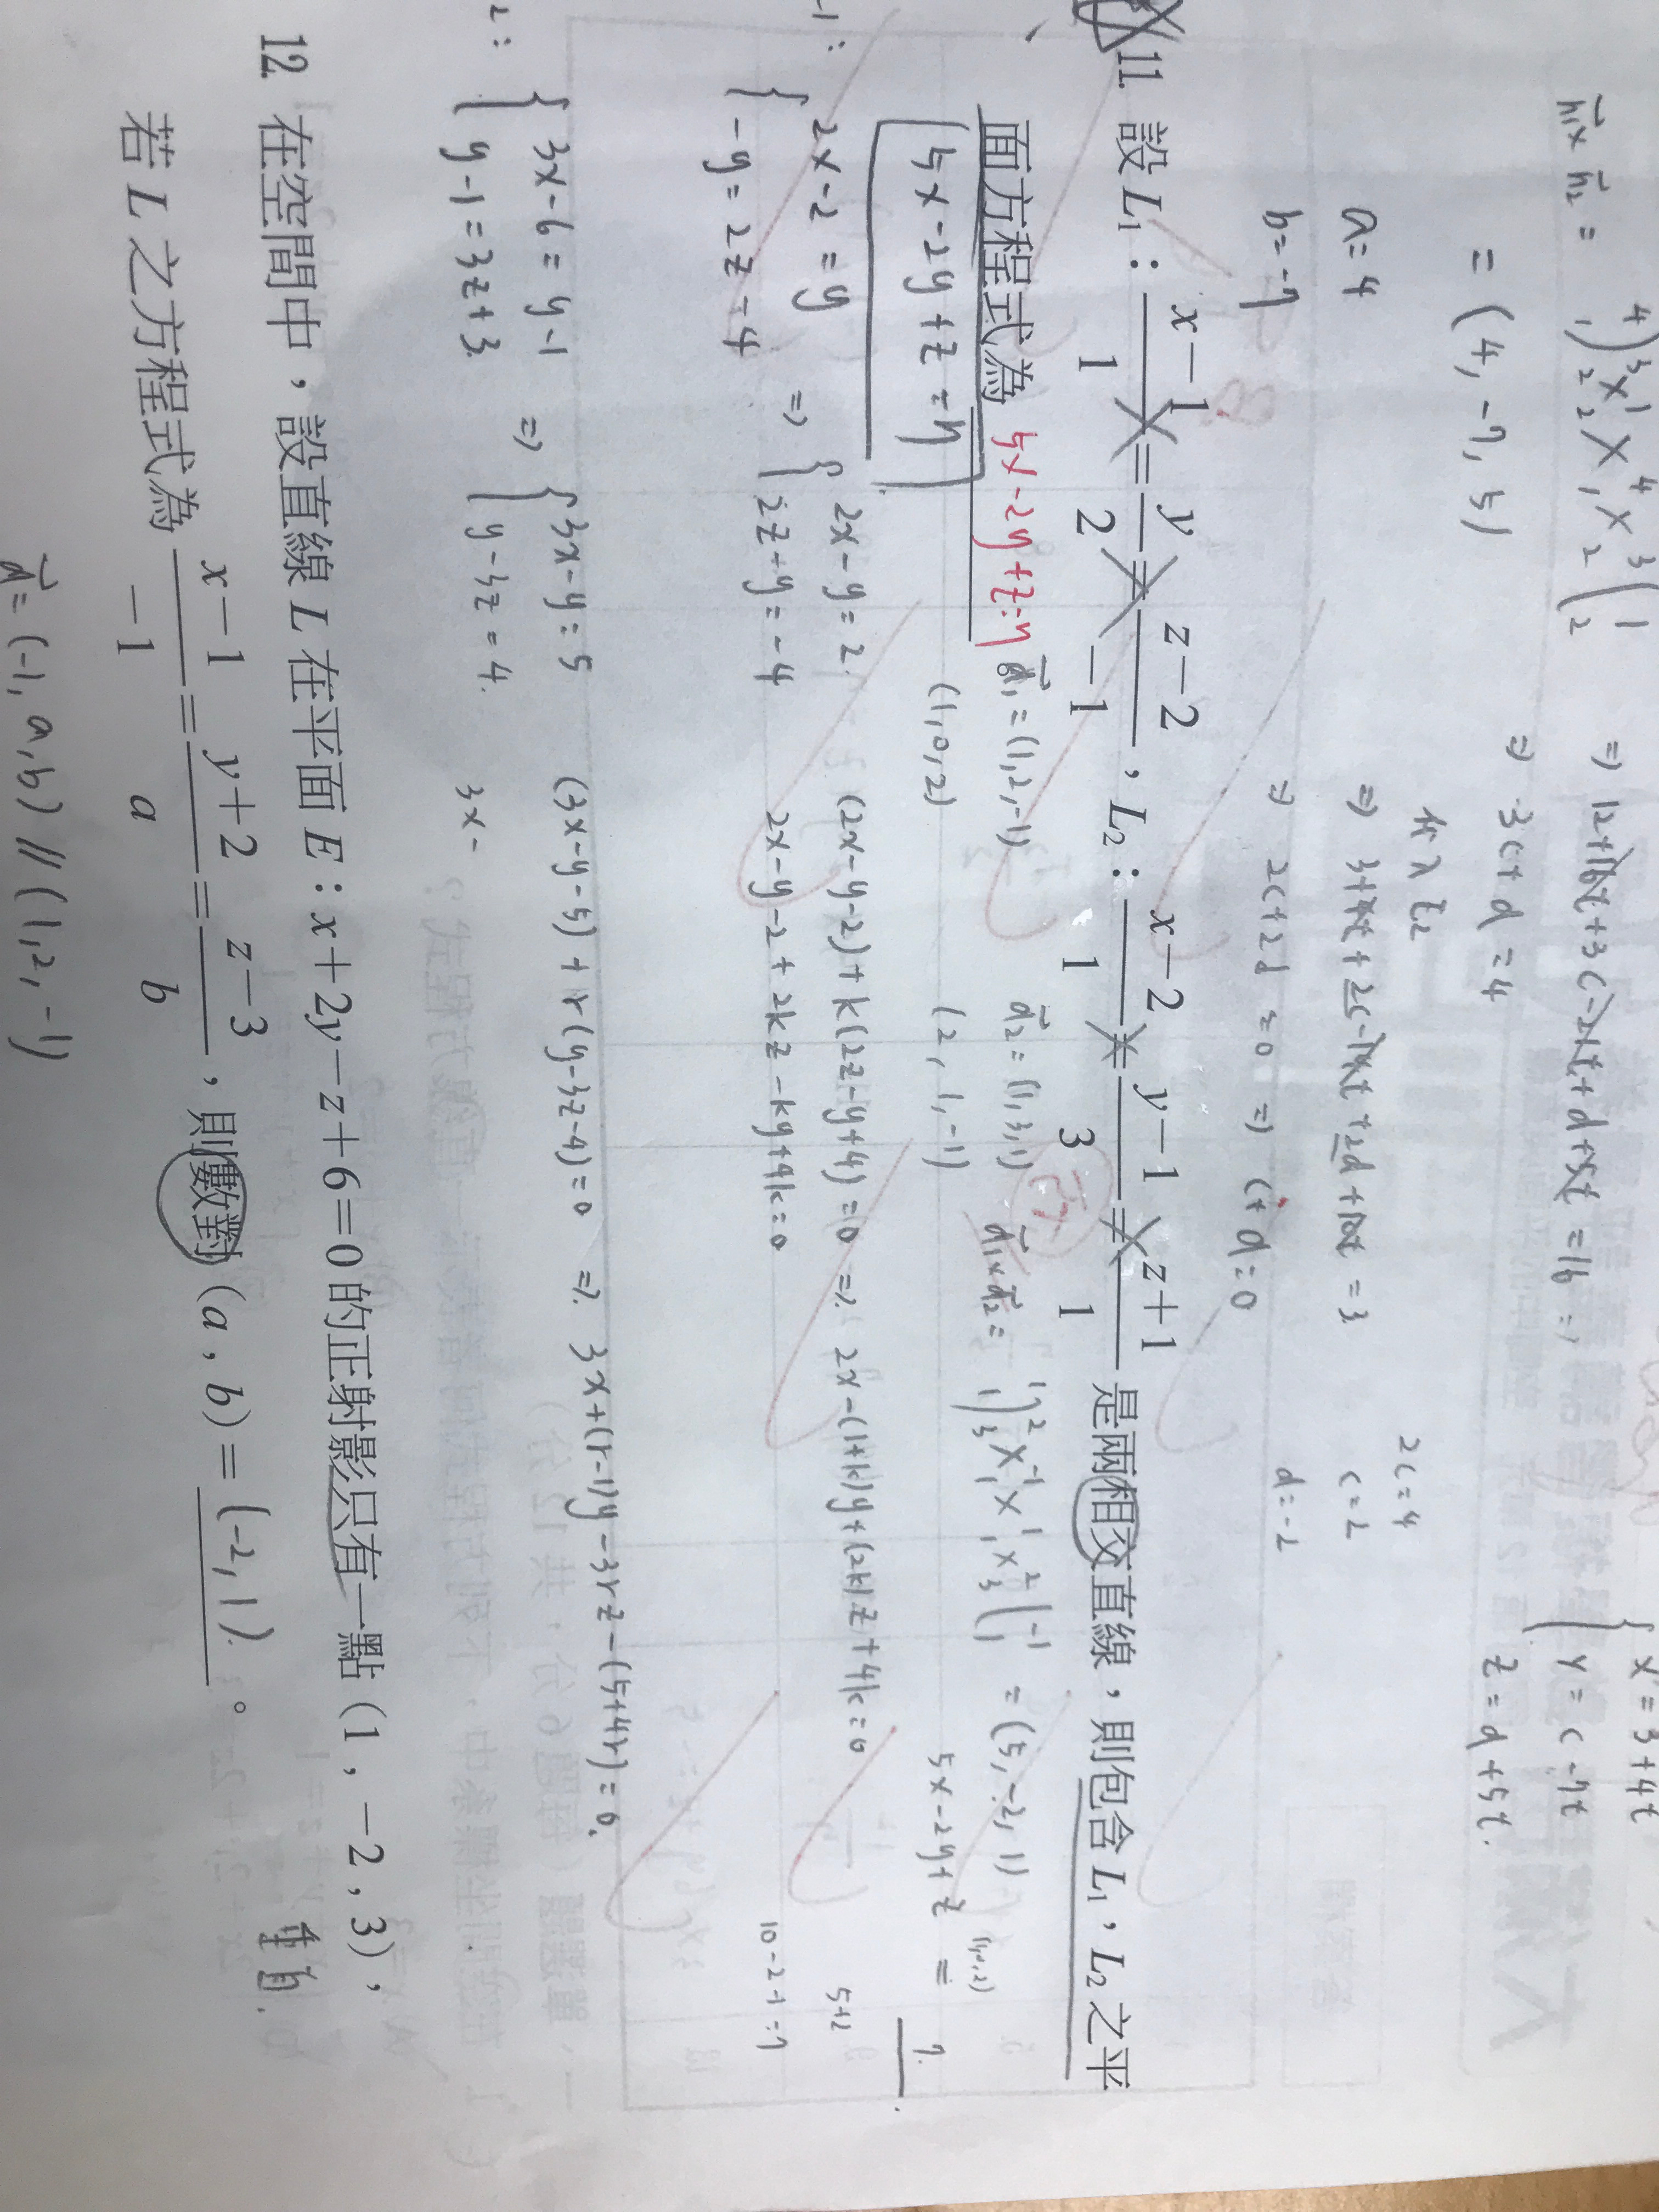 n₁×n₂ =
= (4, -7, 5)
a=4
b=-7
⇒ -3c+d=4
代入E₂
⇒ 2c+2d=0 ⇒ c+d=0
2c=4
c=2
d=-2
x=3+4t
y=c-7t
z=d+5t.
11. 設 L₁：(x−1)/1 = y/2 = (z−2)/−1，L₂：(x−2)/1 = (y−1)/3 = (z+1)/1 是兩相交直線，則包含 L₁，L₂ 之平
面方程式為 5x-2y+z=7
5x-2y+z=7
d₁=(1,2,-1) d₂=(1,3,1) d₁×d₂= = (5,-2,1)
(1,0,2) (2,1,-1) 5x-2y+z = 7.
2x-2=y ⇒ 2x-y=2 (2x-y-2)+k(2z-y+4)=0 ⇒ 2x-(1+k)y+(2k)z+4k=0
-y=2z-4 2z-y=-4 2x-y-2+2kz-ky+4k=0
5+2
10-2-1=7
3x-6=y-1 ⇒ 3x-y=5 (3x-y-5)+r(y-3z-4)=0 ⇒ 3x+(r-1)y-3rz-(5+4r)=0.
y-1=3z+3 y-3z=4. 3x-
12. 在空間中，設直線 L 在平面 E：x+2y−z+6=0 的正射影只有一點（1，−2，3），
垂直.
若 L 之方程式為 (x−1)/−1 = (y+2)/a = (z−3)/b，則數對（a，b）= (-2,1). 。
d=(-1,a,b) // (1,2,-1)